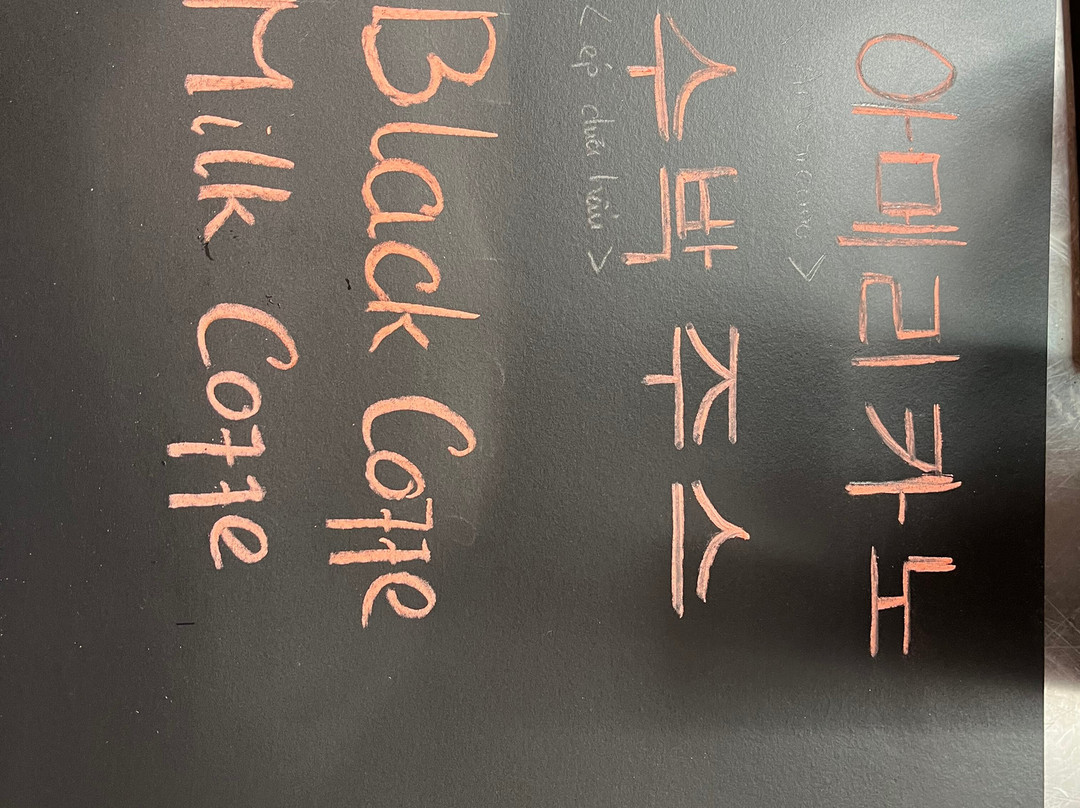 아메리카노
수박 주스
< ép dưa hấu >
Black Coffe
Milk Coffe